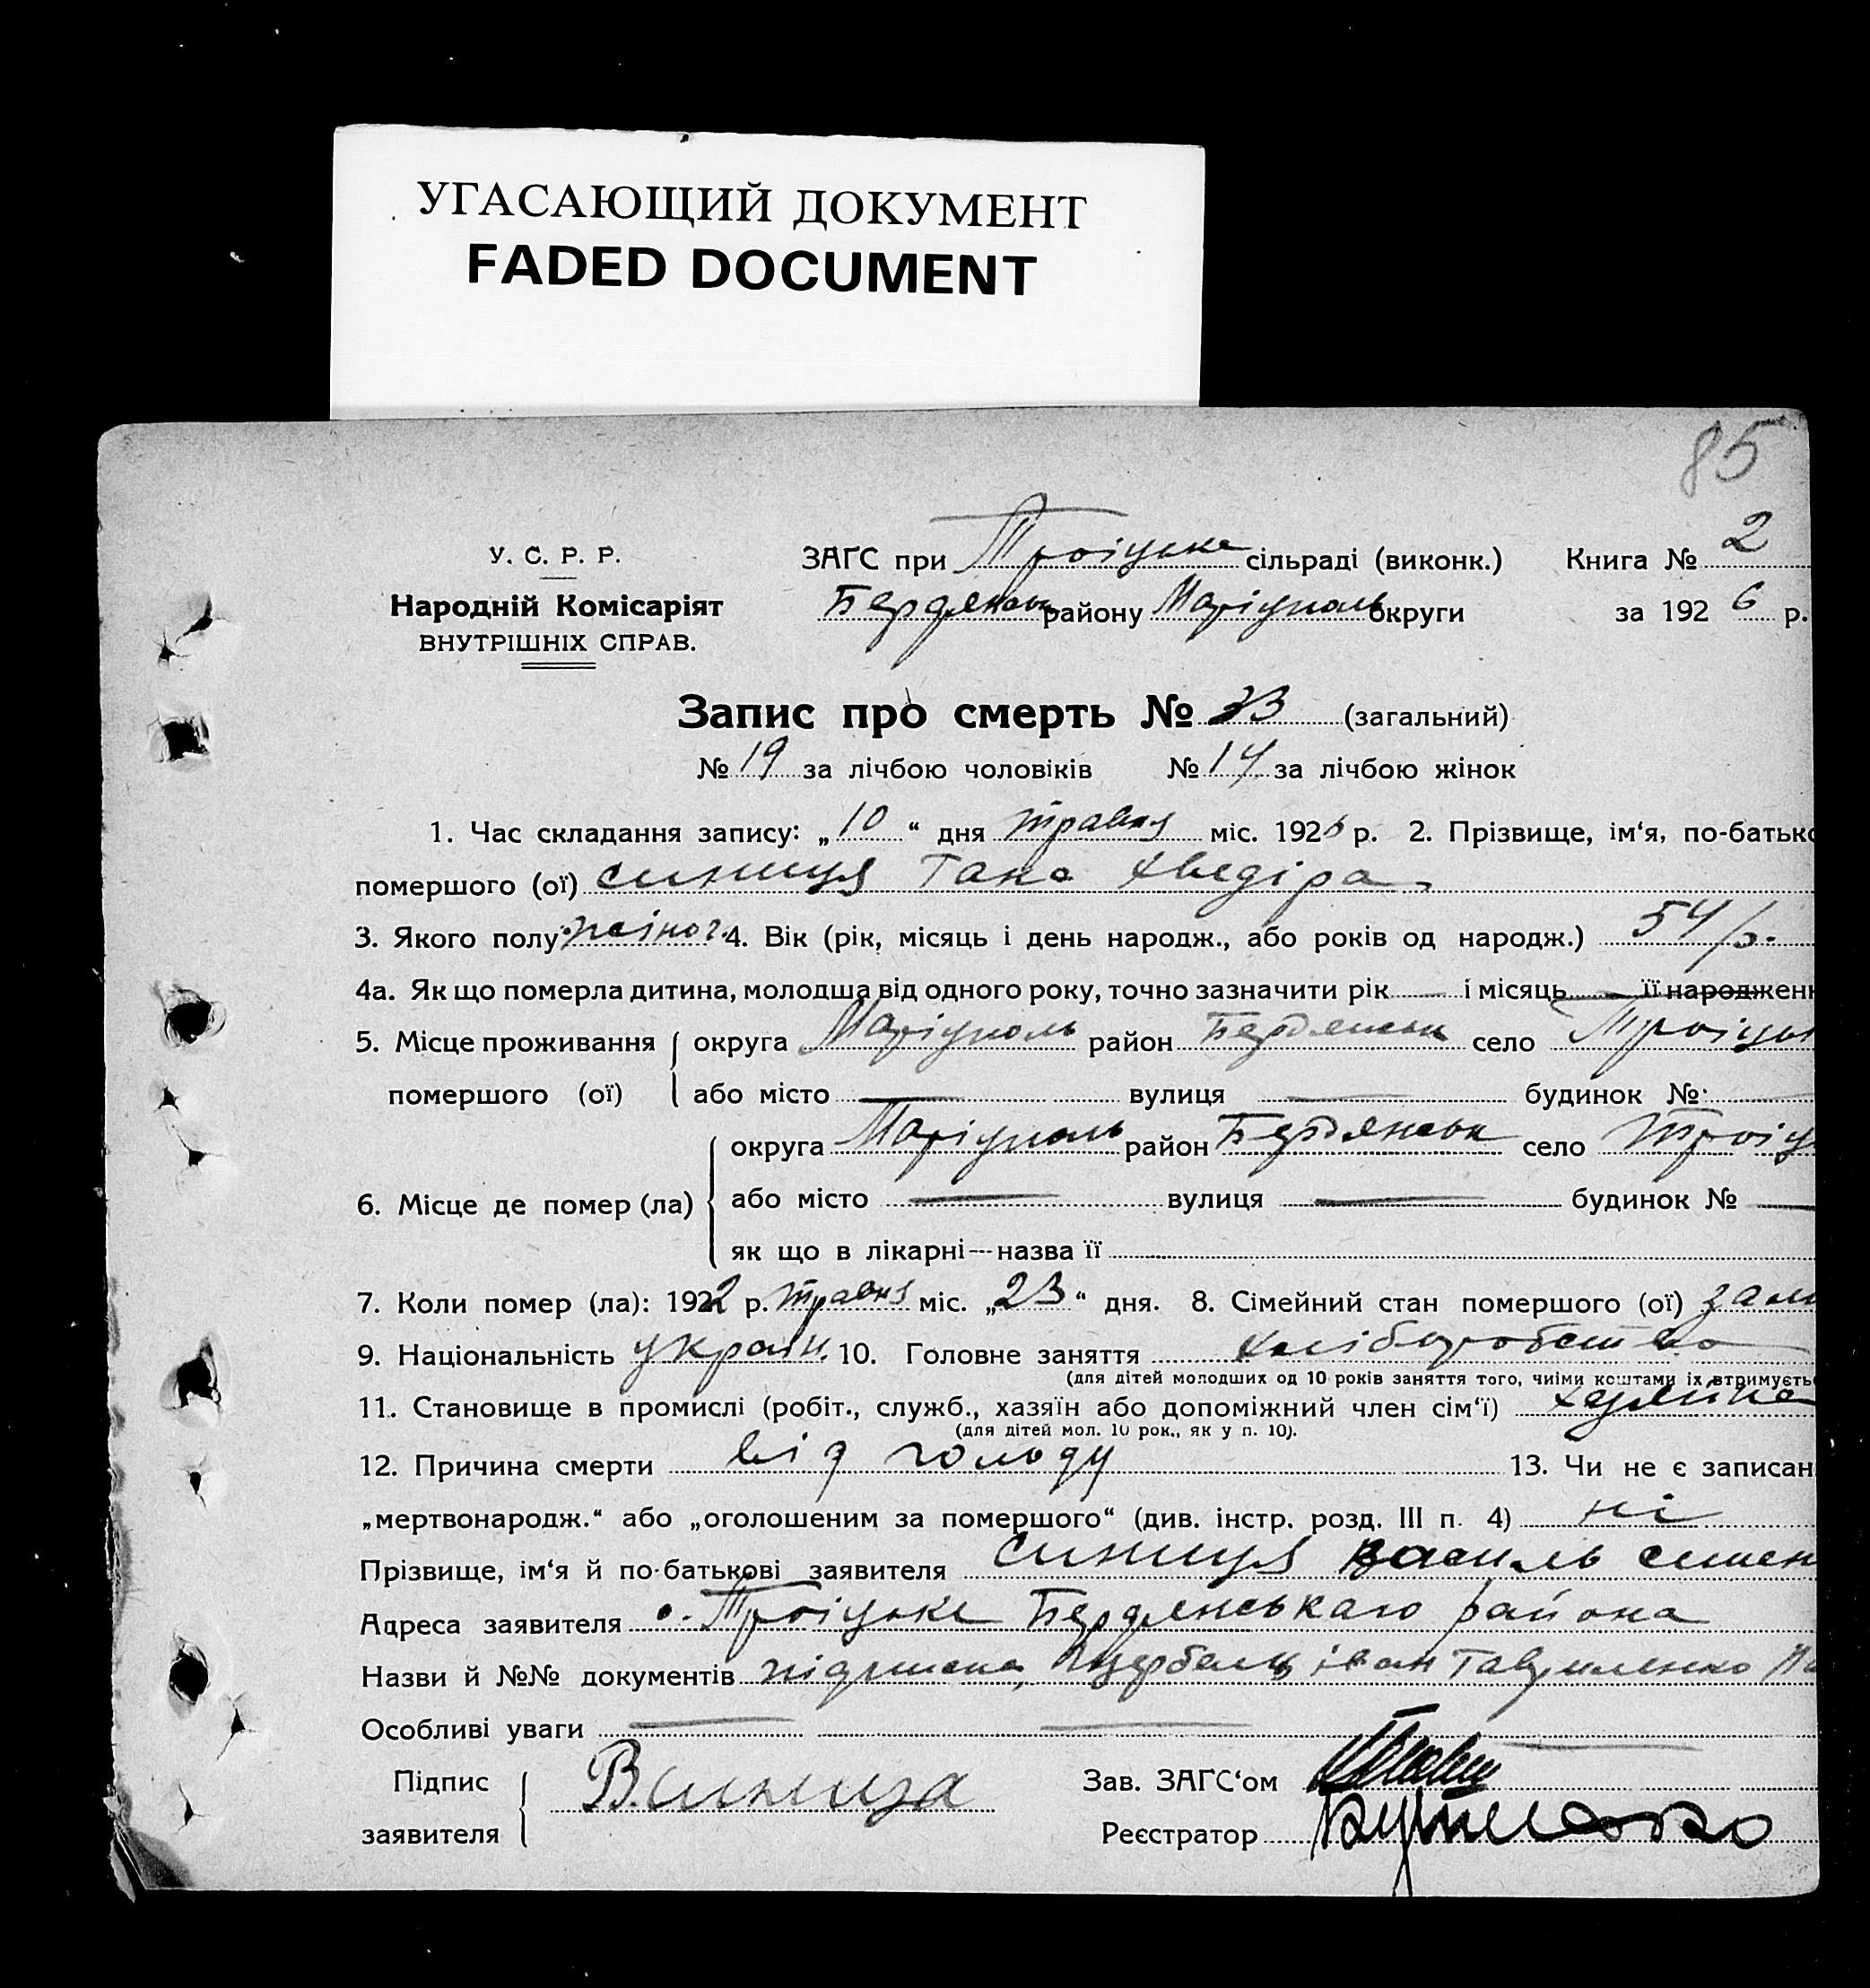 УГАСАЮЩИЙ ДОКУМЕНТ
FADED DOCUMENT
85
У. С. Р. Р.
Народній Комісаріят
ВНУТРІШНІХ СПРАВ.
ЗАГС при Троіцьке сільраді (виконк.) Книга № 2
Бердянськ району Маріуполь округи за 1926 р.
Запис про смерть № 33 (загальний)
№ 19 за лічбою чоловіків № 14 за лічбою жінок
1. Час складання запису: „10“ дня травня міс. 1926 р. 2. Прізвище, ім‘я, по-батько
помершого (ої) синиця Хведіра
3. Якого полу жіноч. 4. Вік (рік, місяць і день народж., або років од народж.) 54 р.
4а. Як що померла дитина, молодша від одного року, точно зазначити рік — і місяць — її народженн
5. Місце проживання помершого (ої) округа Маріуполь район Бердянськ село Троіцьк
або місто — вулиця — будинок № —
6. Місце де помер (ла) округа Маріуполь район Бердянськ село Троіць
або місто — вулиця — будинок № —
як що в лікарні---назва її
7. Коли помер (ла): 1922 р. травня міс. „23“ дня. 8. Сімейний стан помершого (ої) зам
9. Національність україн. 10. Головне заняття хліборобство
(для дітей молодших од 10 років заняття того, чиїми коштами їх втримуєть
11. Становище в промислі (робіт., служб., хазяїн або допоміжний член сім‘ї) хазяйка
(для дітей мол. 10 рок., як у п. 10).
12. Причина смерти від голоду 13. Чи не є записан
„мертвонародж.“ або „оголошеним за помершого“ (див. інстр. розд. III п. 4) ні
Прізвище, ім‘я й по-батькові заявителя синиця василь симен
Адреса заявителя с. Троіцьке Бердянськаго района
Назви й №№ документів підписка, іван Гавриленко
Особливі уваги —
Підпис заявителя В.синиця
Зав. ЗАГС‘ом
Реєстратор